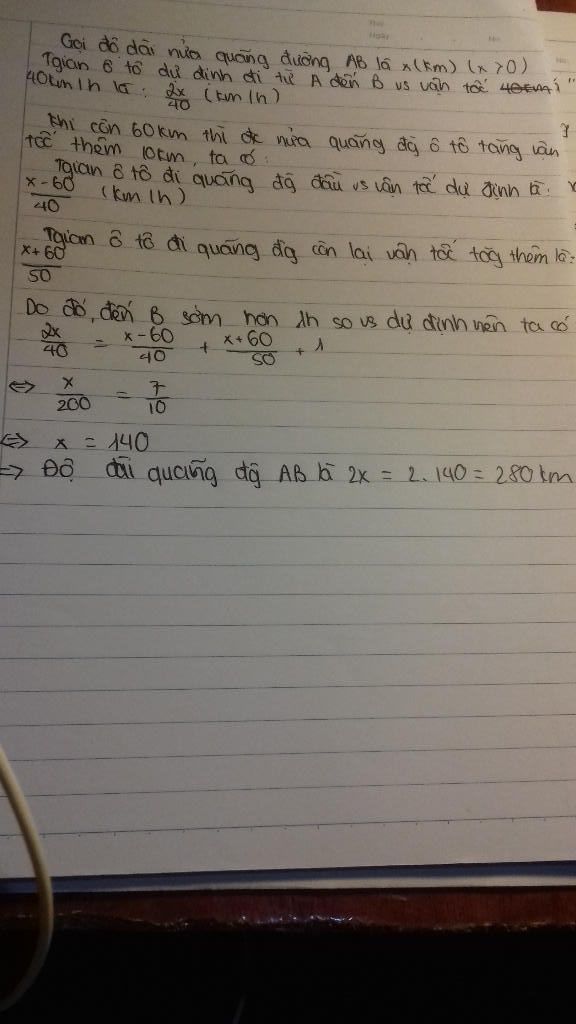 Gọi độ dài nửa quãng đường AB là x (km) (x > 0)
Tgian ô tô dự định đi từ A đến B vs vận tốc
40km/h là: 2x/40 (km/h)
Khi còn 60km thì đc nửa quãng đg ô tô tăng vận
tốc thêm 10km, ta có:
Tgian ô tô đi quãng đg đầu vs vận tốc dự định là:
x-60/40 (km/h)
Tgian ô tô đi quãng đg còn lại vận tốc tăg thêm là:
x+60/50
Do đó, đến B sớm hơn 1h so vs dự định nên ta có
2x/40 = x-60/40 + x+60/50 + 1
<=> x/200 = 7/10
<=> x = 140
=> Độ dài quãng đg AB là 2x = 2.140 = 280km